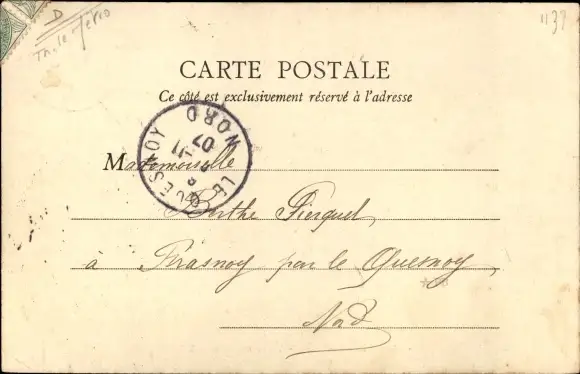 1139
CARTE POSTALE
Ce côté est exclusivement réservé à l'adresse
LE QUESNOY NORD
07
Mademoiselle
Berthe Pierquel
à Frasnoy par le Quesnoy,
Nord